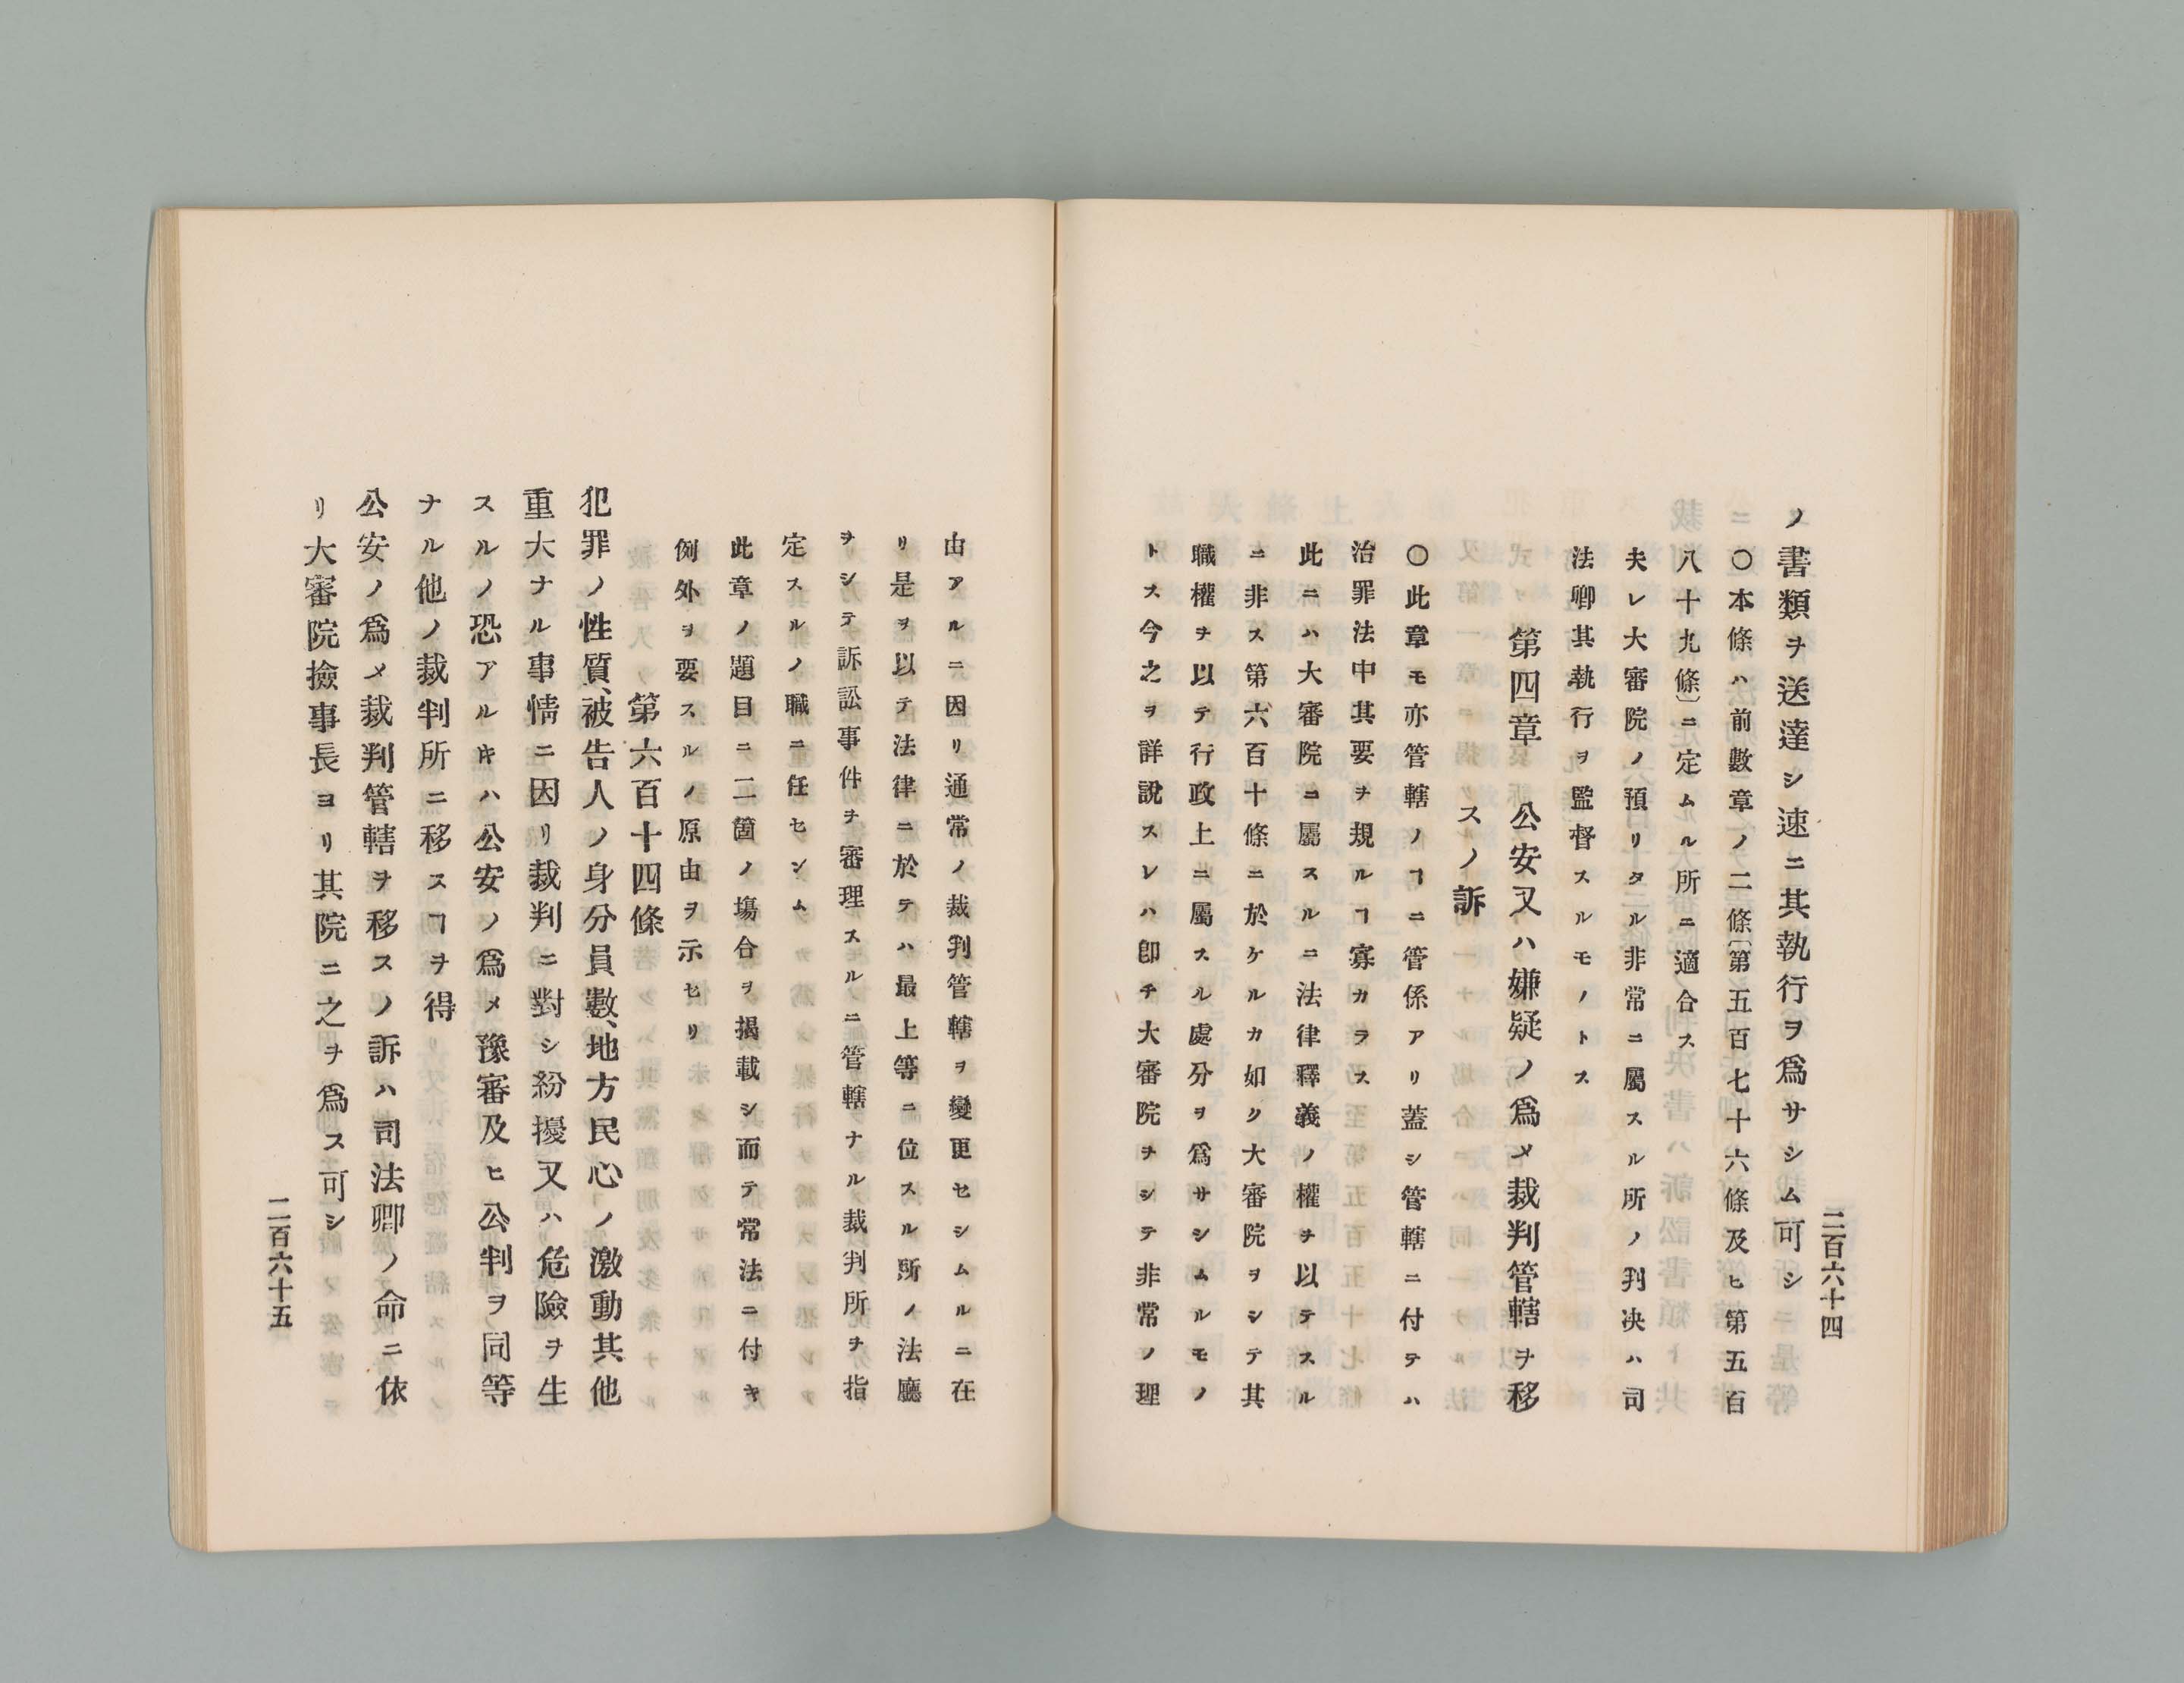 二百六十四
ノ書類ヲ送達シ速ニ其執行ヲ爲サシム可シ
〇本條ハ前數章ノ二條〔第五百七十六條及ヒ第五百
八十九條〕ニ定ムル所ニ適合ス
夫レ大審院ノ預リタル非常ニ屬スル所ノ判决ハ司
法卿其執行ヲ監督スルモノトス
第四章　公安又ハ嫌疑ノ爲メ裁判管轄ヲ移
スノ訴
〇此章モ亦管轄ノヿニ管係アリ蓋シ管轄ニ付テハ
治罪法中其要ヲ規ルヿ寡カラス
此ニハ大審院ニ屬スルニ法律釋義ノ權ヲ以テスル
ニ非ス第六百十條ニ於ケルカ如ク大審院ヲシテ其
職權ヲ以テ行政上ニ屬スル處分ヲ爲サシムルモノ
トス今之ヲ詳說スレハ卽チ大審院ヲシテ非常ノ理
由アルニ因リ通常ノ裁判管轄ヲ變更セシムルニ在
リ是ヲ以テ法律ニ於テハ最上等ニ位スル所ノ法廳
ヲシテ訴訟事件ヲ審理スルニ管轄ナル裁判所ヲ指
定スルノ職ニ任セシム
此章ノ題目ニ二箇ノ塲合ヲ揭載シ而テ常法ニ付キ
例外ヲ要スルノ原由ヲ示セリ
第六百十四條
犯罪ノ性質、被告人ノ身分員數、地方民心ノ激動其他
重大ナル事情ニ因リ裁判ニ對シ紛擾又ハ危險ヲ生
スルノ恐アルキハ公安ノ爲メ豫審及ヒ公判ヲ同等
ナル他ノ裁判所ニ移スヿヲ得
公安ノ爲メ裁判管轄ヲ移スノ訴ハ司法卿ノ命ニ依
リ大審院撿事長ヨリ其院ニ之ヲ爲ス可シ
二百六十五